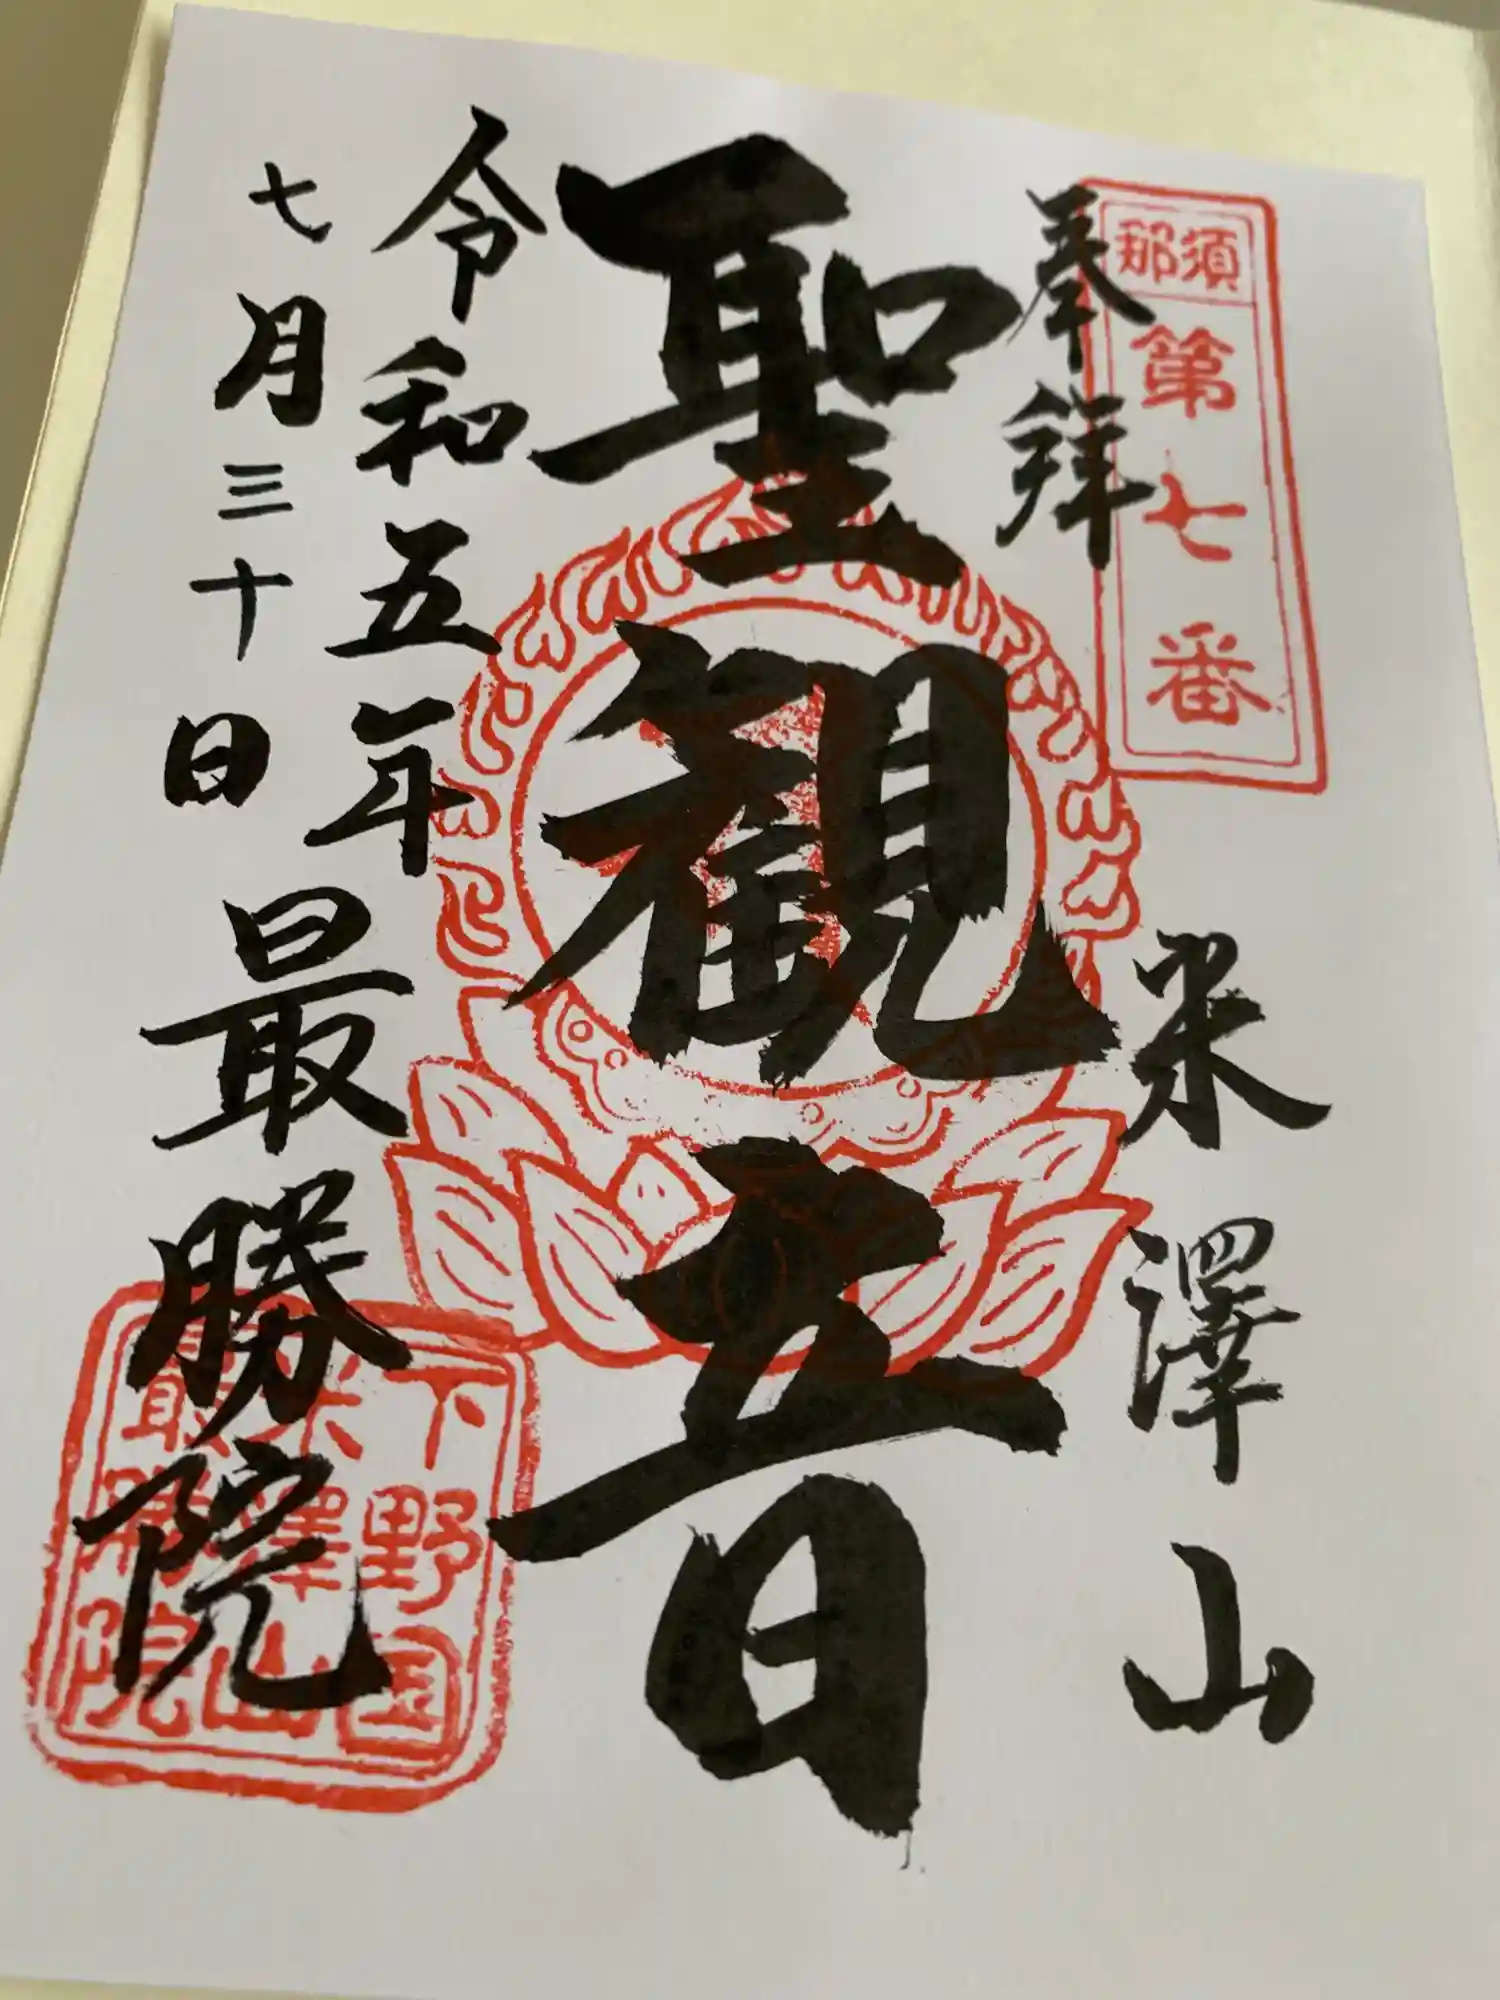 那須
第七番
奉拝
米澤山
聖観音
令和五年
七月三十日
最勝院
下野国
米澤山
最勝院